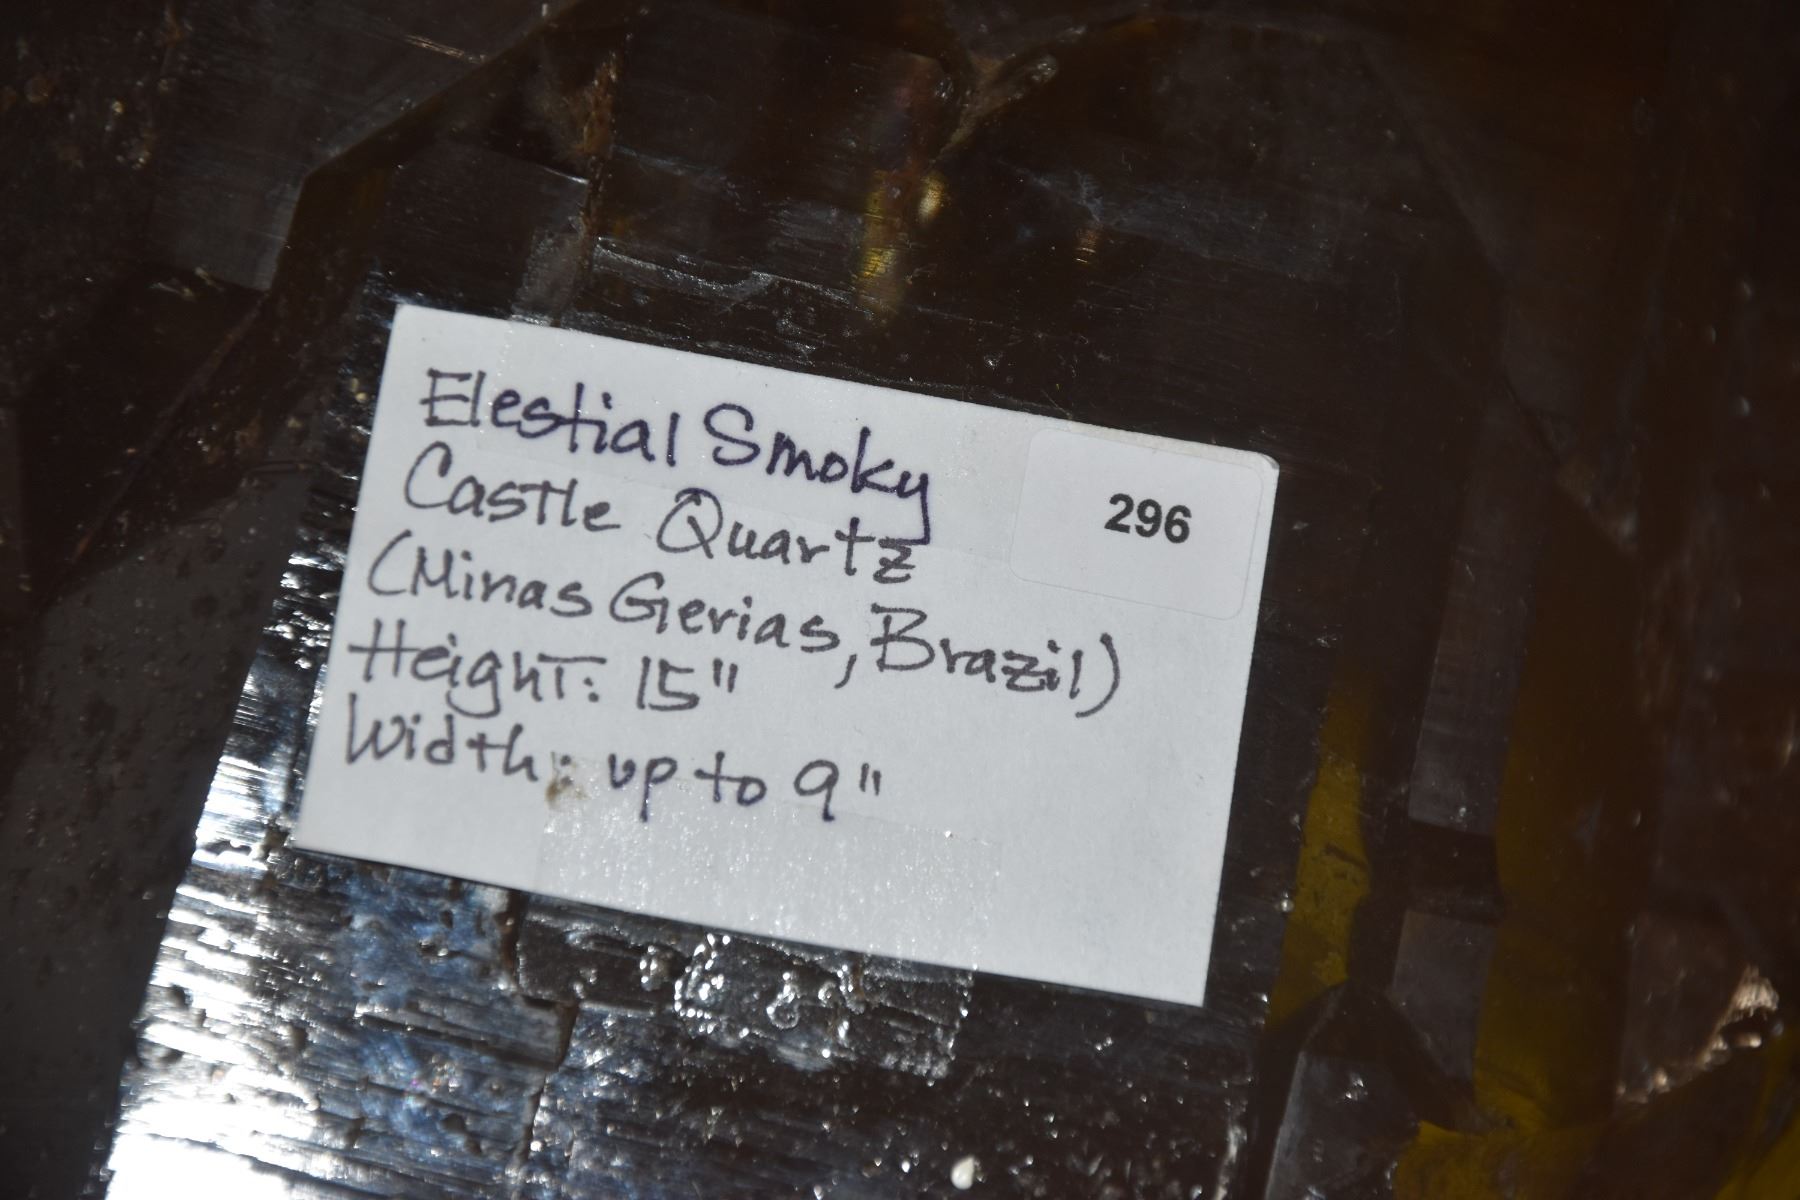 Elestial Smoky
Castle Quartz
296
(Minas Gerias, Brazil)
Height: 15"
Width: up to 9"